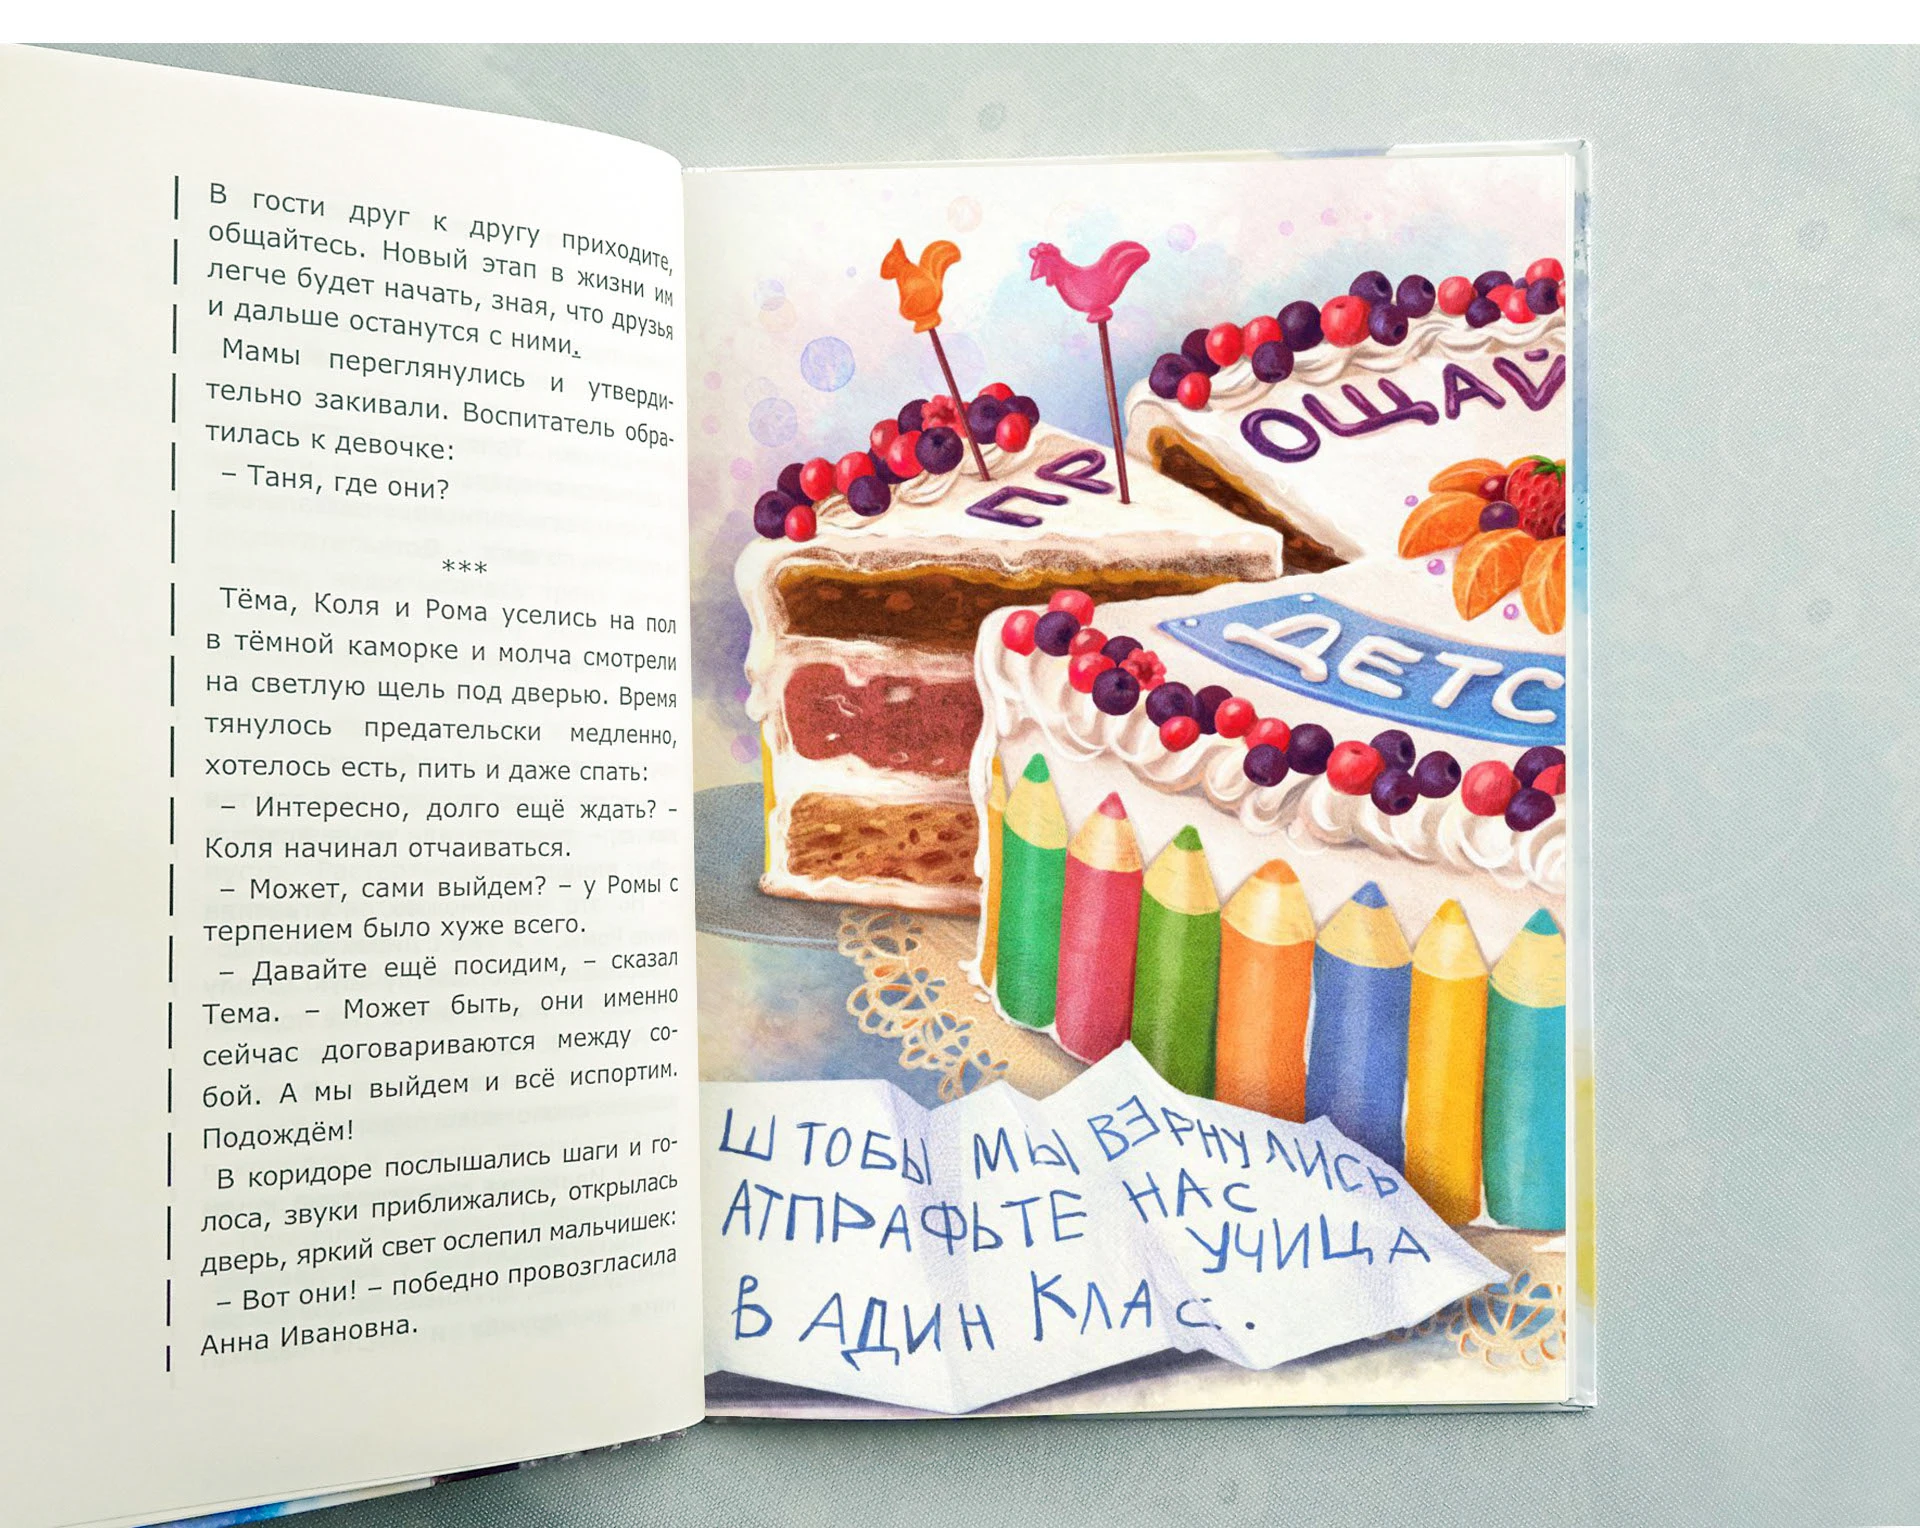 В гости друг к другу приходите,
общайтесь. Новый этап в жизни им
легче будет начать, зная, что друзья
и дальше останутся с ними.
Мамы переглянулись и утверди-
тельно закивали. Воспитатель обра-
тилась к девочке:
– Таня, где они?
***
Тёма, Коля и Рома уселись на пол
в тёмной каморке и молча смотрели
на светлую щель под дверью. Время
тянулось предательски медленно,
хотелось есть, пить и даже спать:
– Интересно, долго ещё ждать? –
Коля начинал отчаиваться.
– Может, сами выйдем? – у Ромы с
терпением было хуже всего.
– Давайте ещё посидим, – сказал
Тема. – Может быть, они именно
сейчас договариваются между со-
бой. А мы выйдем и всё испортим.
Подождём!
В коридоре послышались шаги и го-
лоса, звуки приближались, открылась
дверь, яркий свет ослепил мальчишек:
– Вот они! – победно провозгласила
Анна Ивановна.
ПР
ОЩАЙ
ДЕТС
ШТОБЫ МЫ ВЭРНУЛИСЬ
АТПРАФЬТЕ НАС
УЧИЦА
В АДИН КЛАС.